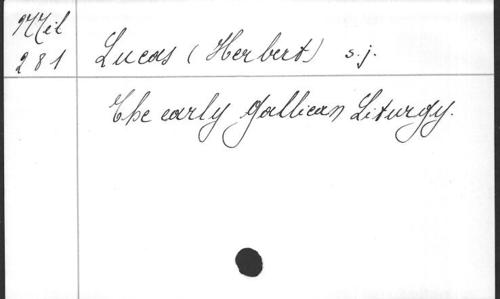 Mél
281
Lucas (Herbert) s.j.
The early Gallican Liturgy.